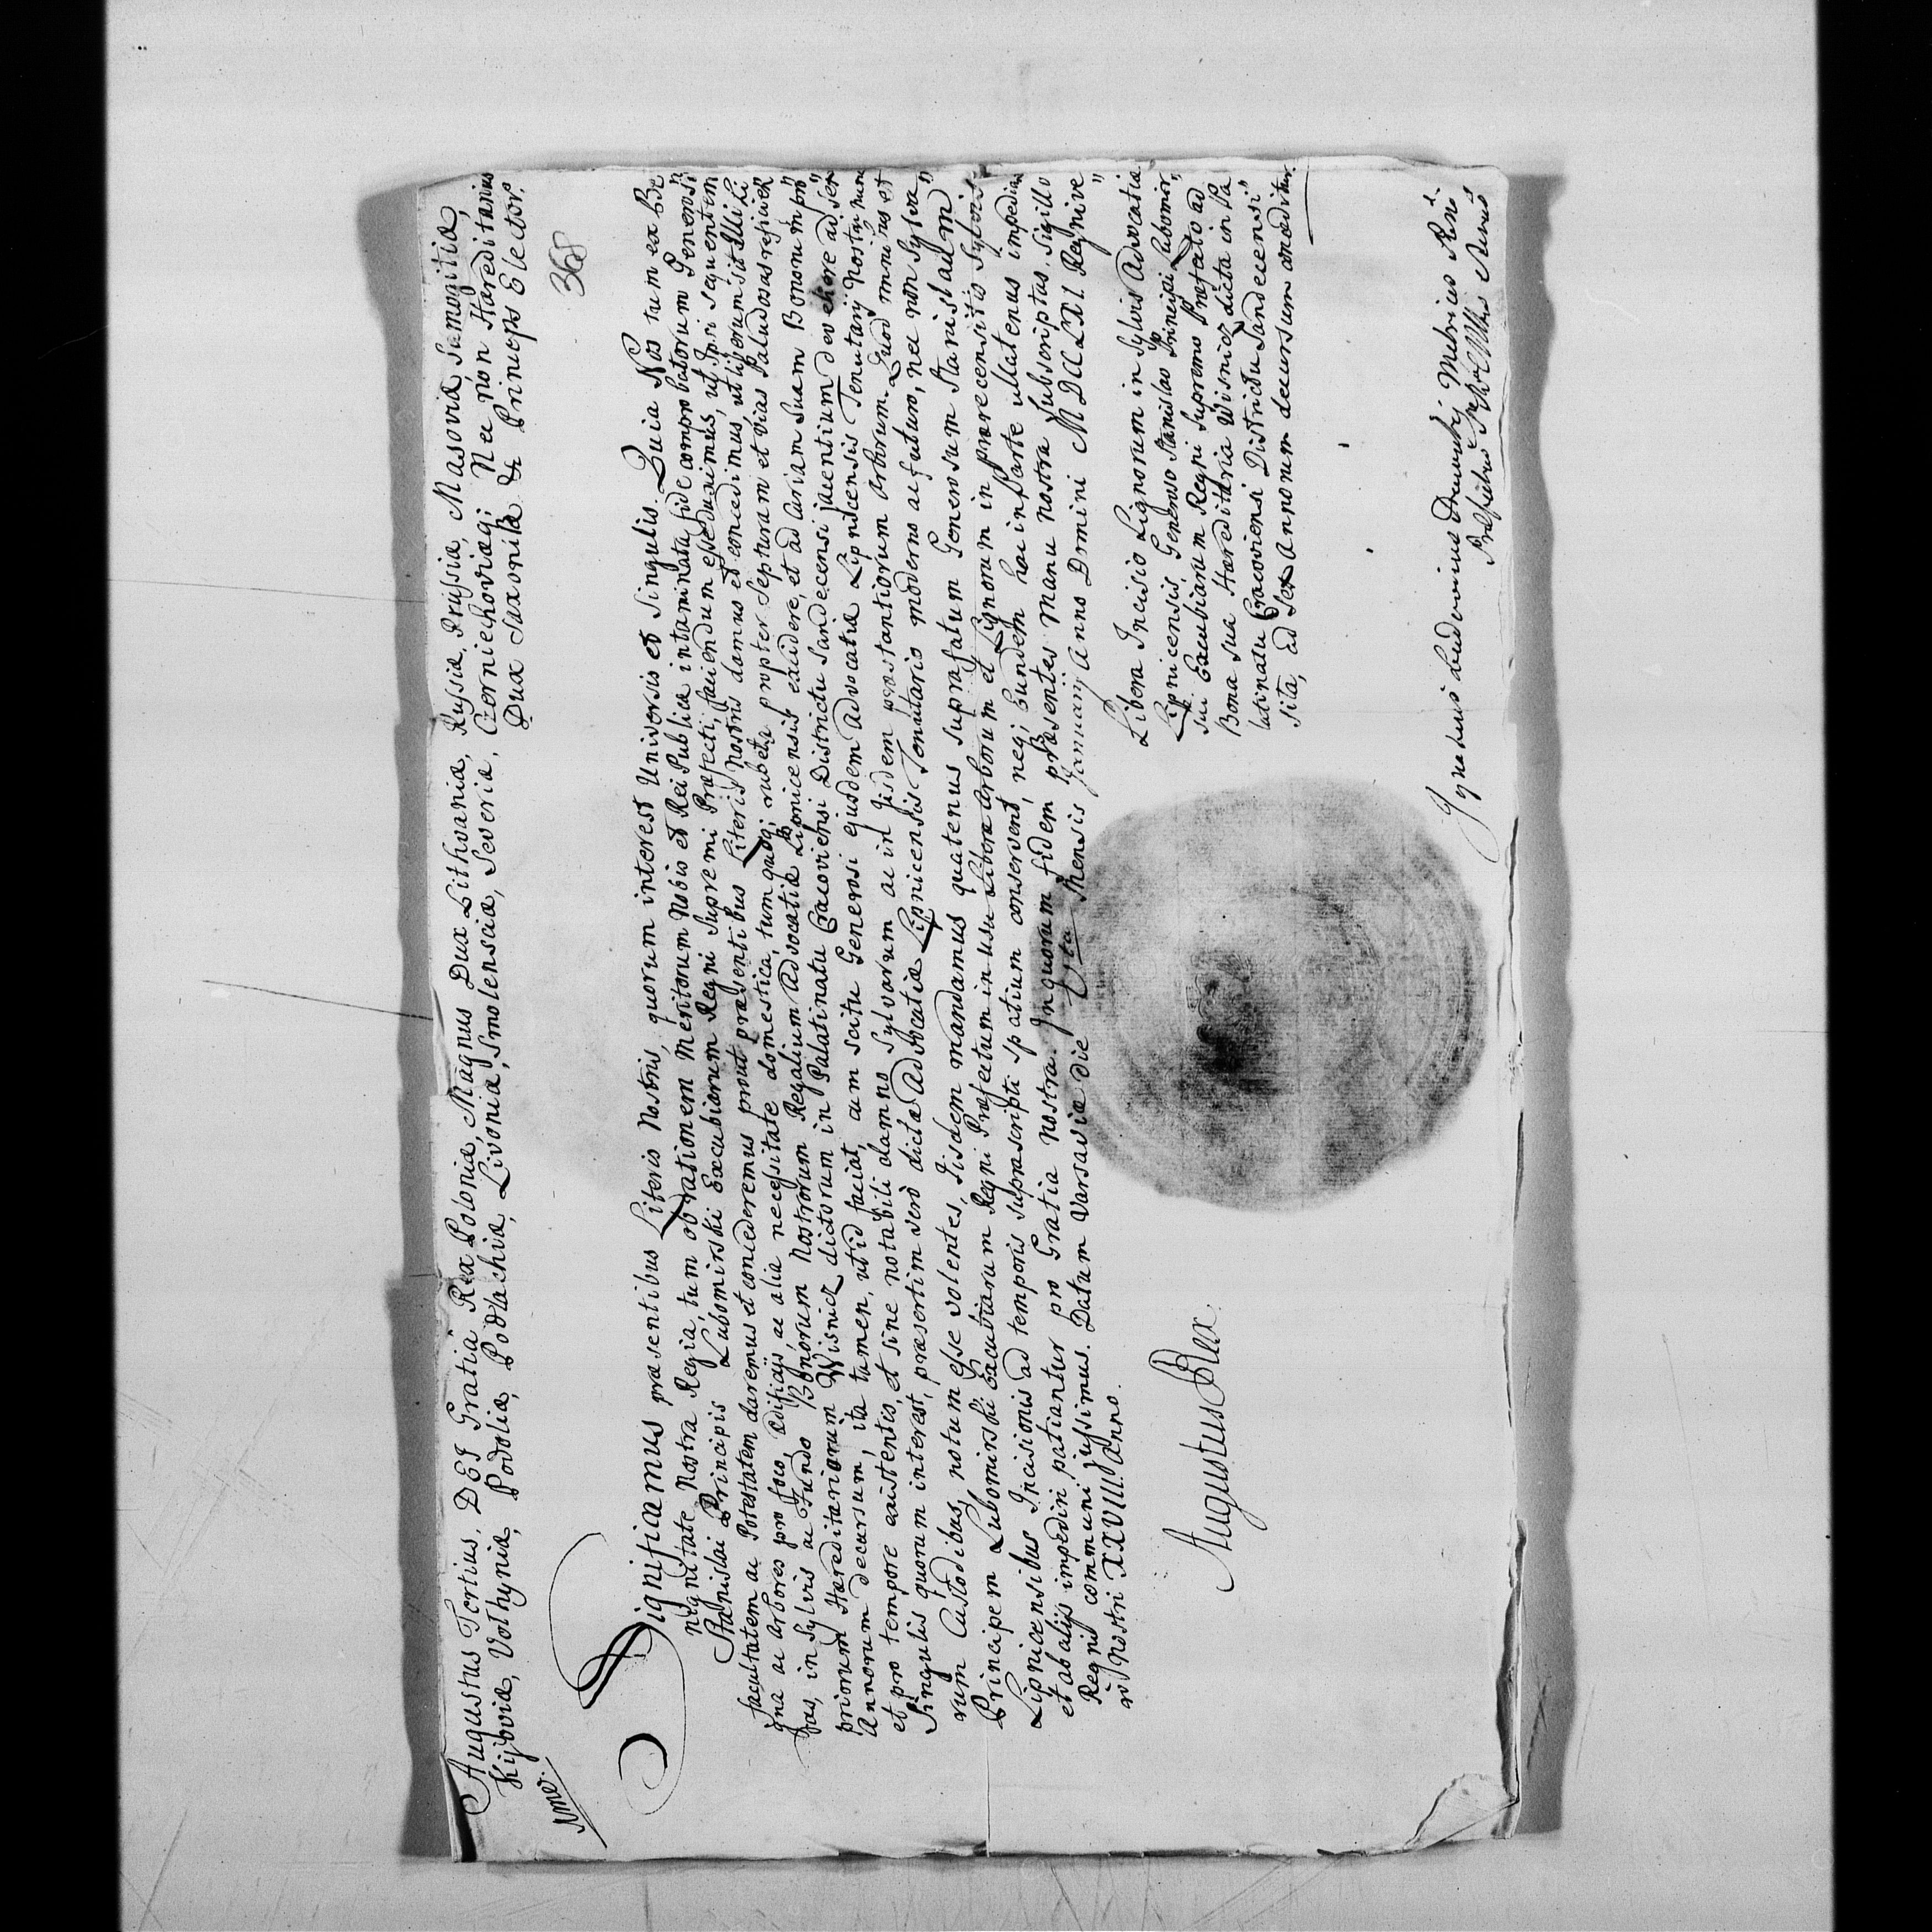 Augustus Tertius, DEI Gratia Rex Poloniæ, Magnus Dux Lithvaniæ, Russiæ, Prussiæ, Masoviæ, Samogitiæ,
Kijoviæ, Volhyniæ, Podoliæ, Podlachiæ, Livoniæ, Smolensciæ, Severiæ, Czerniechoviæq; Nec nòn Hæreditarius
Dux Saxoniæ & Princeps Elector.
368
Significamus præsentibus Literis Nostris, quorum interest Universis et Singulis. Quia Nos tum ex Be„
nignitate Nostra Regia, tum ob rationem Meritorum Nobis et Rei Publicæ intaminata fide comprobatorum Generosi
Stanislai Principis Lubomirski Excubiarum Regni Supremi Præfecti, faciendum esse duximus, ut Ipsi sequentem
facultatem ac Potestatem daremus et concederemus prout præsentibus Literis Nostris damus et concedimus, ut liberum sit Illi Li„
gna ac arbores pro foco, ædificijs ac alia necessitate domestica, tum quoq; rubeta propter Septuram et vias Paludosas reficien„
das, in Sylvis ac Fundo Bonorum Nostrorum Regalium Advocatiæ Lipnicensis excidere, et ad Curiam suam Bonorum pro„
priorum Hæreditariorum Wisnicz dictorum in Palatinatu Cracoviensi Districtu Sandecensi jacentium devehere ad sex
Annorum decursum, ita tamen, ut id faciat, cum scitu Generosi ejusdem Advocatiæ Lipnicensis Tenutarij Nostri nunc
et pro tempore existentis, et sine notabili damno Sylvarum ac in Iisdem præstantiorum Arborum. Quod omnibus et
Singulis quorum interest, præsertim verò dictæ Advocatiæ Lipnicensis Tenutario moderno ac futuro, nec nòn Sylva„
rum Custodibus, notum esse volentes, Iisdem mandamus quatenus supra fatum Generosum Stanislaum
Principem Lubomirski Excubiarum Regni Præfectum in usu Libero Arborum et Lignorum in præcensitis Sylvis
Lipnicensibus Incisionis ad temporis suprascripti spatium conservent, neq; Eundem hac in parte ullatenus impediant
et ab alijs impediri patiantur pro Gratia nostra. In quorum fidem præsentes Manu nostra Subscriptas, Sigillo
Regni communi jussimus. Datum Varsaviæ die Mensis Januarij Anno Domini MDCCLXI Regni ve„
rò Nostri XXVIII. Anno.
Augustus Rex
Libera Incisio Lignorum in Sylvis Advocatiæ
Lipnicensis, Generoso Stanislao Principi Lubomir„
ski Excubiarum Regni Supremo Præfecto ad
Bona sua Hæreditaria Wisnicz dicta in Pa„
latinatu Cracoviensi Districtu Sandecensi
sita, ad sex Annorum decursum conceditur.